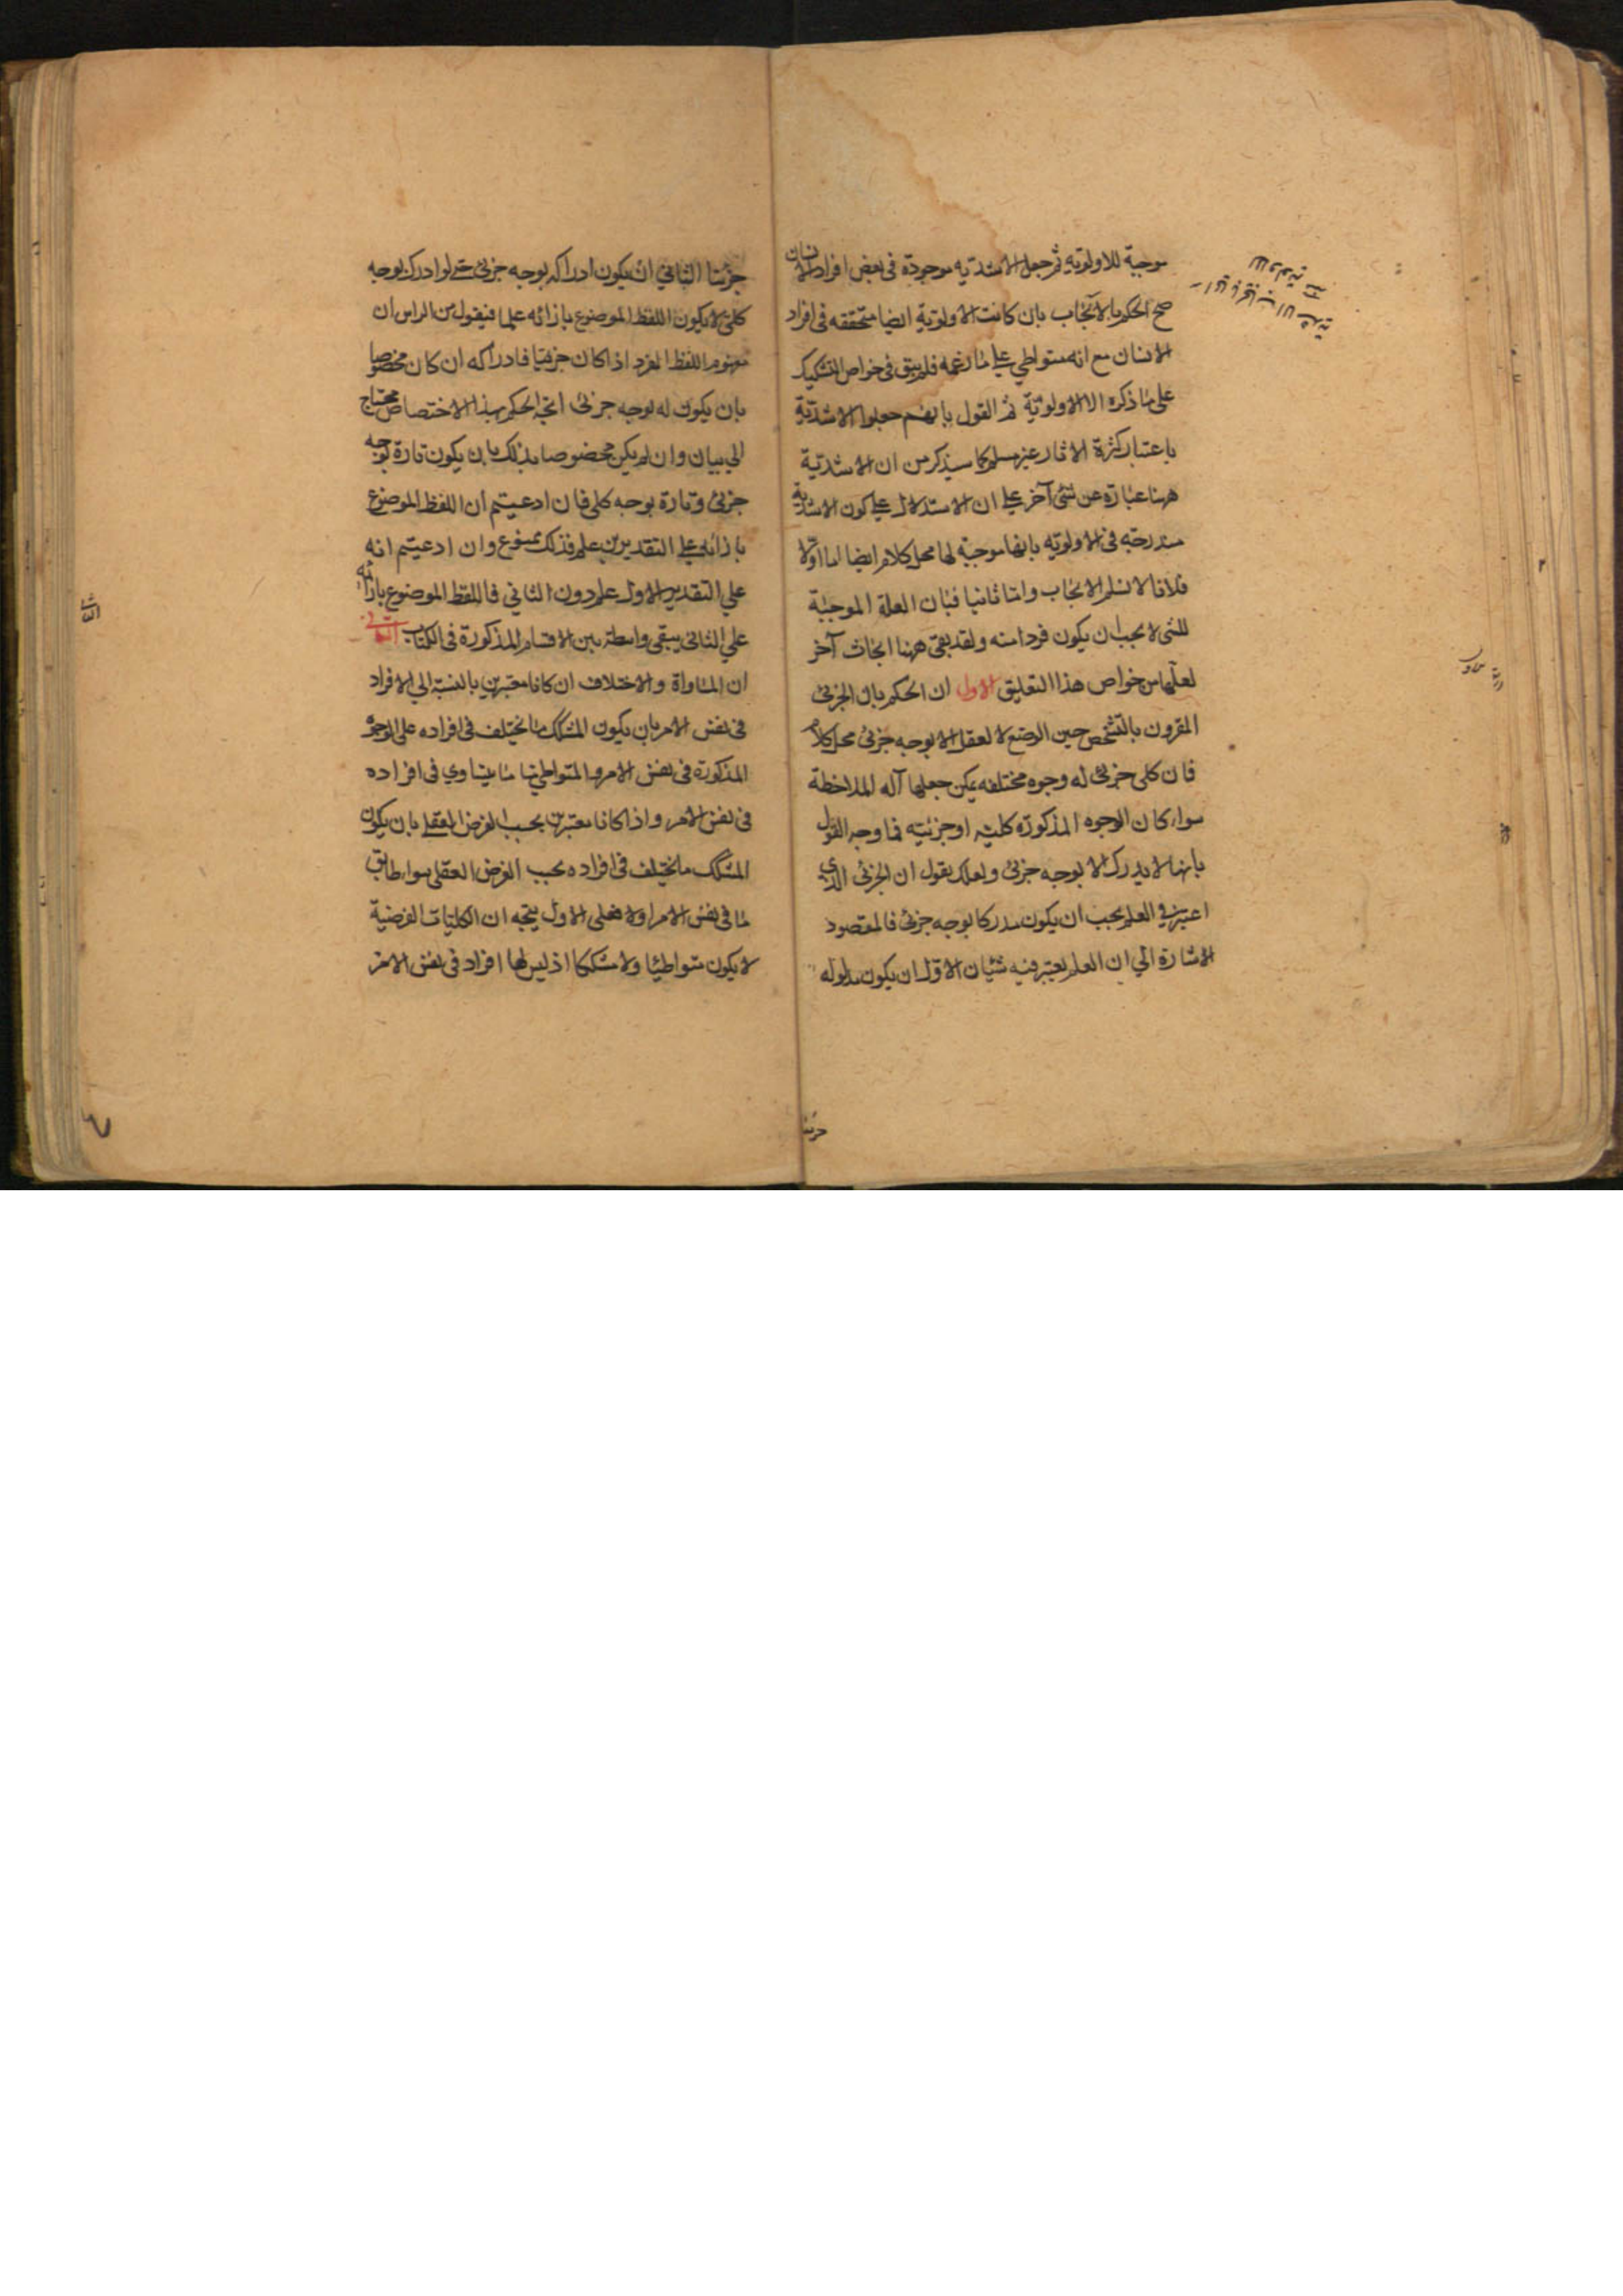 موجبة للاولوية ثم جعل الاشدية موجودة فى بعض افراد الانسان
صح الحكم بالايجاب بان كانت الاولوية ايضا متحققه فى افراد
الانسان مع انه متواطي علي ما زعمه فلم يبق فى خواص التشكيك
على ما ذكره الا الاولوية ثم القول بانهم جعلوا الاشدية
باعتبار كثرة الاثار غير مسلم كما سيذكر من ان الاشدية
ههنا عبارة عن شئ آخر علي ان الاستدلال علي كون الاشدية
مندرجة فى الاولويه بانها موجبة لها محل كلام ايضا اما اولا
فلانا لا نسلم الايجاب واما ثانيا فبان العلة الموجبة
للشى لا يجب ان يكون فردا منه ولقد بقى ههنا ابحاث آخر
لعلها من خواص هذا التعليق الاول ان الحكم بان الجزئى
المقرون بالتشخص حين الوضع لا يعقل الا بوجه جزئى محل كلام
فان كلى جزئى له وجوه مختلفه يمكن جعلها آله لملاحظة
سواء كان الوجوه المذكورة كلية او جزئية فما وجه القول
بانها لا يدرك الا بوجه جزئى ولعلك تقول ان الجزئى الذي
اعتبر فى العلم يجب ان يكون مدركا بوجه جزئى فالمقصود
الاشارة الي ان العلم يعتبر فيه شيئان الاول ان يكون مدلوله
جزئيا الثاني ان يكون ادراكه بوجه جزئى حتى لو ادرك بوجه
كلى لا يكون اللفظ الموضوع بازائه علما فنقول من الراس ان
مفهوم اللفظ المفرد اذا كان جزئيا فادراكه ان كان مخصوصا
بان يكون له بوجه جزئى اتجه الحكم بهذا الاختصاص محتاج
الي بيان وان لم يكن مخصوصا بذلك بان يكون تارة بوجه
جزئى وتارة بوجه كلى فان ادعيتم ان اللفظ الموضوع
بازائه علي التقديرين علم فذلك ممنوع وان ادعيتم انه
علي التقدير الاول علم دون الثاني فاللفظ الموضوع بازائه
علي الثانى يبقى واسطة بين الاقسام المذكورة فى الكتاب الثانى
ان المساواة والاختلاف ان كانا معتبرين بالنسبة الي الافراد
فى نفس الامر بان يكون المشكك ما يختلف فى افراده على الوجوه
المذكورة فى نفس الامر والمتواطي ما يتساوي فى افراده
فى نفس الامر واذا كانا معتبرين بحسب الفرض العقلى بان يكون
المشكك ما يختلف فى افراده بحسب الفرض العقلى سواء طابق
ما فى نفس الامر اولا فعلى الاول يتجه ان الكليات الفرضية
لا يكون متواطيا ولا مشككا اذ ليس لها افراد فى نفس الامر